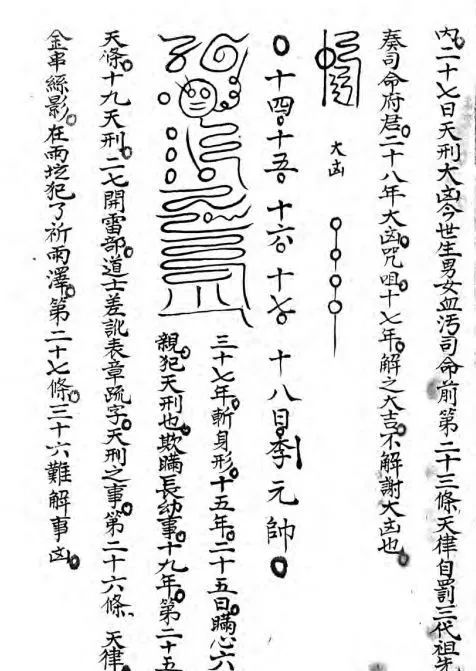 内。二十七日天刑大凶今世生男女血污司命前第二十三條天律自罰三代祖先
奏司命府君。二十八年大凶。咒咀。十七年。解之大吉。不解謝大凶也。
大凶
十四。十五。十六。十七。十八日。李元帥。
三十七年。斬身形。十五年。二十五日。瞞心六
親。犯天刑也。欺瞞長幼事。十九年。第二十五
天條。十九天刑。二七開雷部。道士差訛表章疏字。天刑之事。第二十六條、天律
金串絲影。在雨坛犯了祈雨澤。第二十七條。三十六難解事凶。